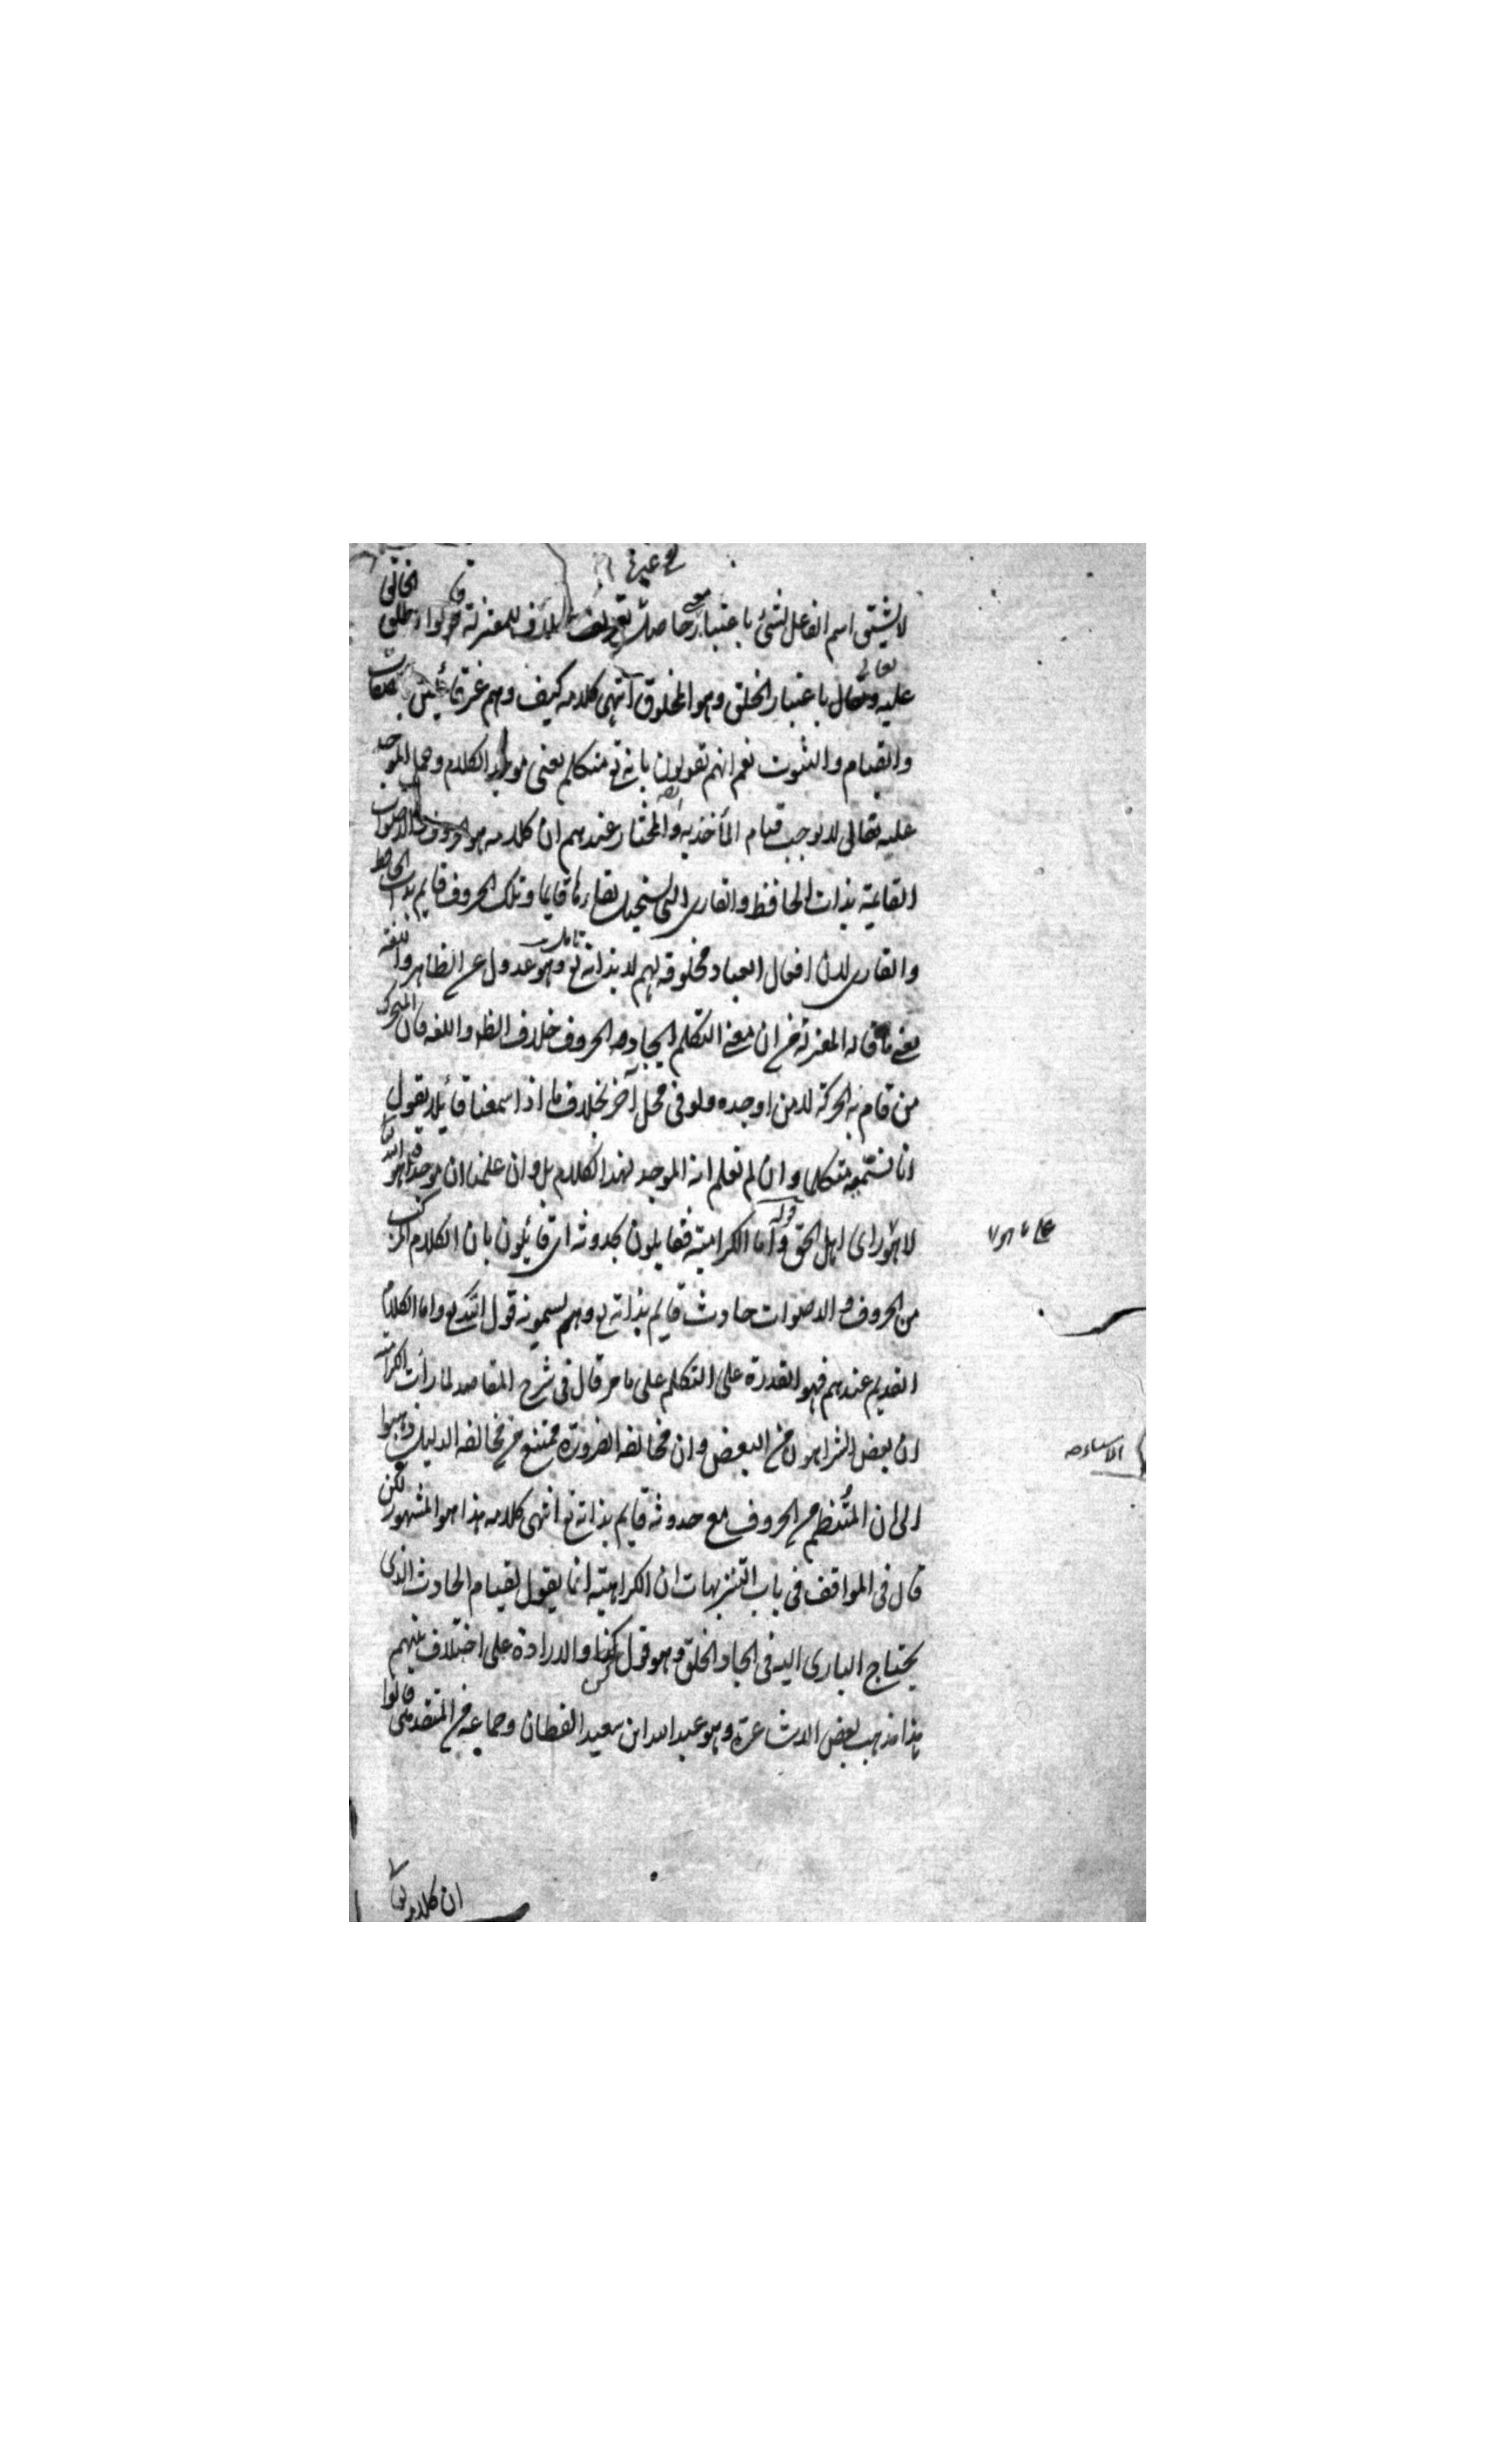 في غيره
لا يشتق اسم الفاعل لشئ باعتبار معنى حاصل لغيره خلافا للمعتزلة قالوا يطلق الخالق
عليه تعالى باعتبار الخلق وهو المخلوق انتهى كلامه كيف وهم غير قائلين بصفات
والقيام والثبوت نعم انهم يقولون بانه تع متكلم بمعنى موجد الكلام وحمل الموجد
عليه تعالى لا يوجب قيام المأخذ به والمختار عندهم ان كلامه هو الحروف والاصوات
القائمة بذات الحافظ والقارى التى يستحيل بقاءها قايما وتلك الحروف قايم بذات الحافظ
والقارى لان افعال العباد مخلوقة لهم لا بذاته تع وهو عدول عن الظاهر واللغة
يعنى ما قاله المعتزلة من ان معنى التكلم ايجاده الحروف خلاف الظ واللغة فان المتحرك
من قام به الحركة لا من اوجده ولو فى محل آخر بخلاف ما اذا سمعنا قائلا يقول
انا فنسميه متكلما وان لم نعلم انه الموجد لهذا الكلام بل وان علمنا ان موجده هو الله تعا
لا هو راى اهل الحق قوله واما الكرامية فقايلون بحدوثه اى قائلون بان الكلام المركب
على ما هو
من الحروف والاصوات حادث قايم بذاته تع وهم يسمونه قول الله تع واما الكلام
القديم عندهم فهو القدرة على التكلم على ما مر قال فى شرح المقاصد لما رأت الكرامية
ان بعض الشر اهون من البعض وان مخالفة الضرورة ممتنع من مخالفة الدليل ذهبوا
الى ان المنتظم من الحروف مع حدوثه قايم بذاته تع انتهى كلامه هذا هو المشهور لكن
قال فى المواقف فى باب التنزيهات ان الكرامية انما يقول لقيام الحادث الذى
يحتاج البارى اليه فى ايجاد الخلق وهو قول كن والارادة على اختلاف بينهم
هذا مذهب بعض الاشاعرة وهو عبد الله ابن سعيد القطان وجماعة من المتقدمين قالوا
ان كلامه تعا